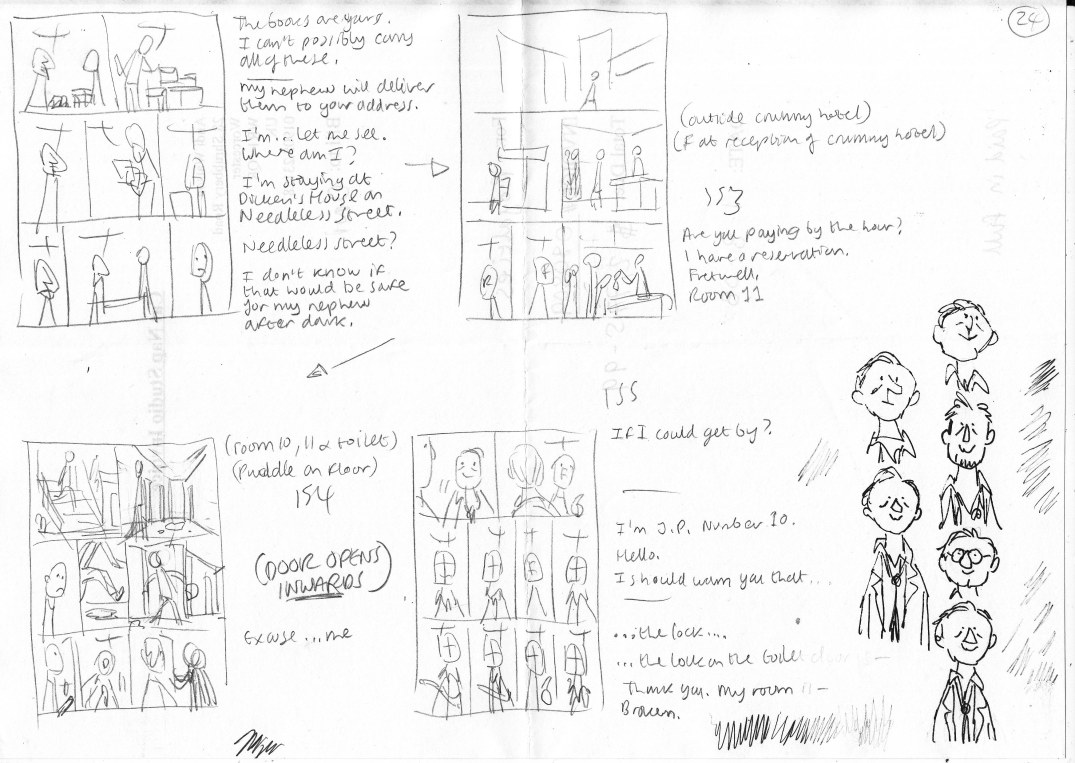 24
The books are yours.
I can't possibly carry
all of these.
my nephew will deliver
them to your address.
I'm... Let me see.
Where am I?
I'm staying at
Dicken's House on
Needleless Street.
Needleless Street?
I don't know if
that would be safe
for my nephew
after dark.
(outside crummy hotel)
(F at reception of crummy hotel)
153
Are you paying by the hour?
I have a reservation.
Fretwell.
Room 11
(room 10, 11 & toilet)
(Puddle on floor)
154
(DOOR OPENS
INWARDS)
Excuse...me
155
If I could get by?
I'm J.P. Number 10.
Hello.
I should warn you that...
...the lock...
...the lock on the toilet
Thank you. My room –
Broken.